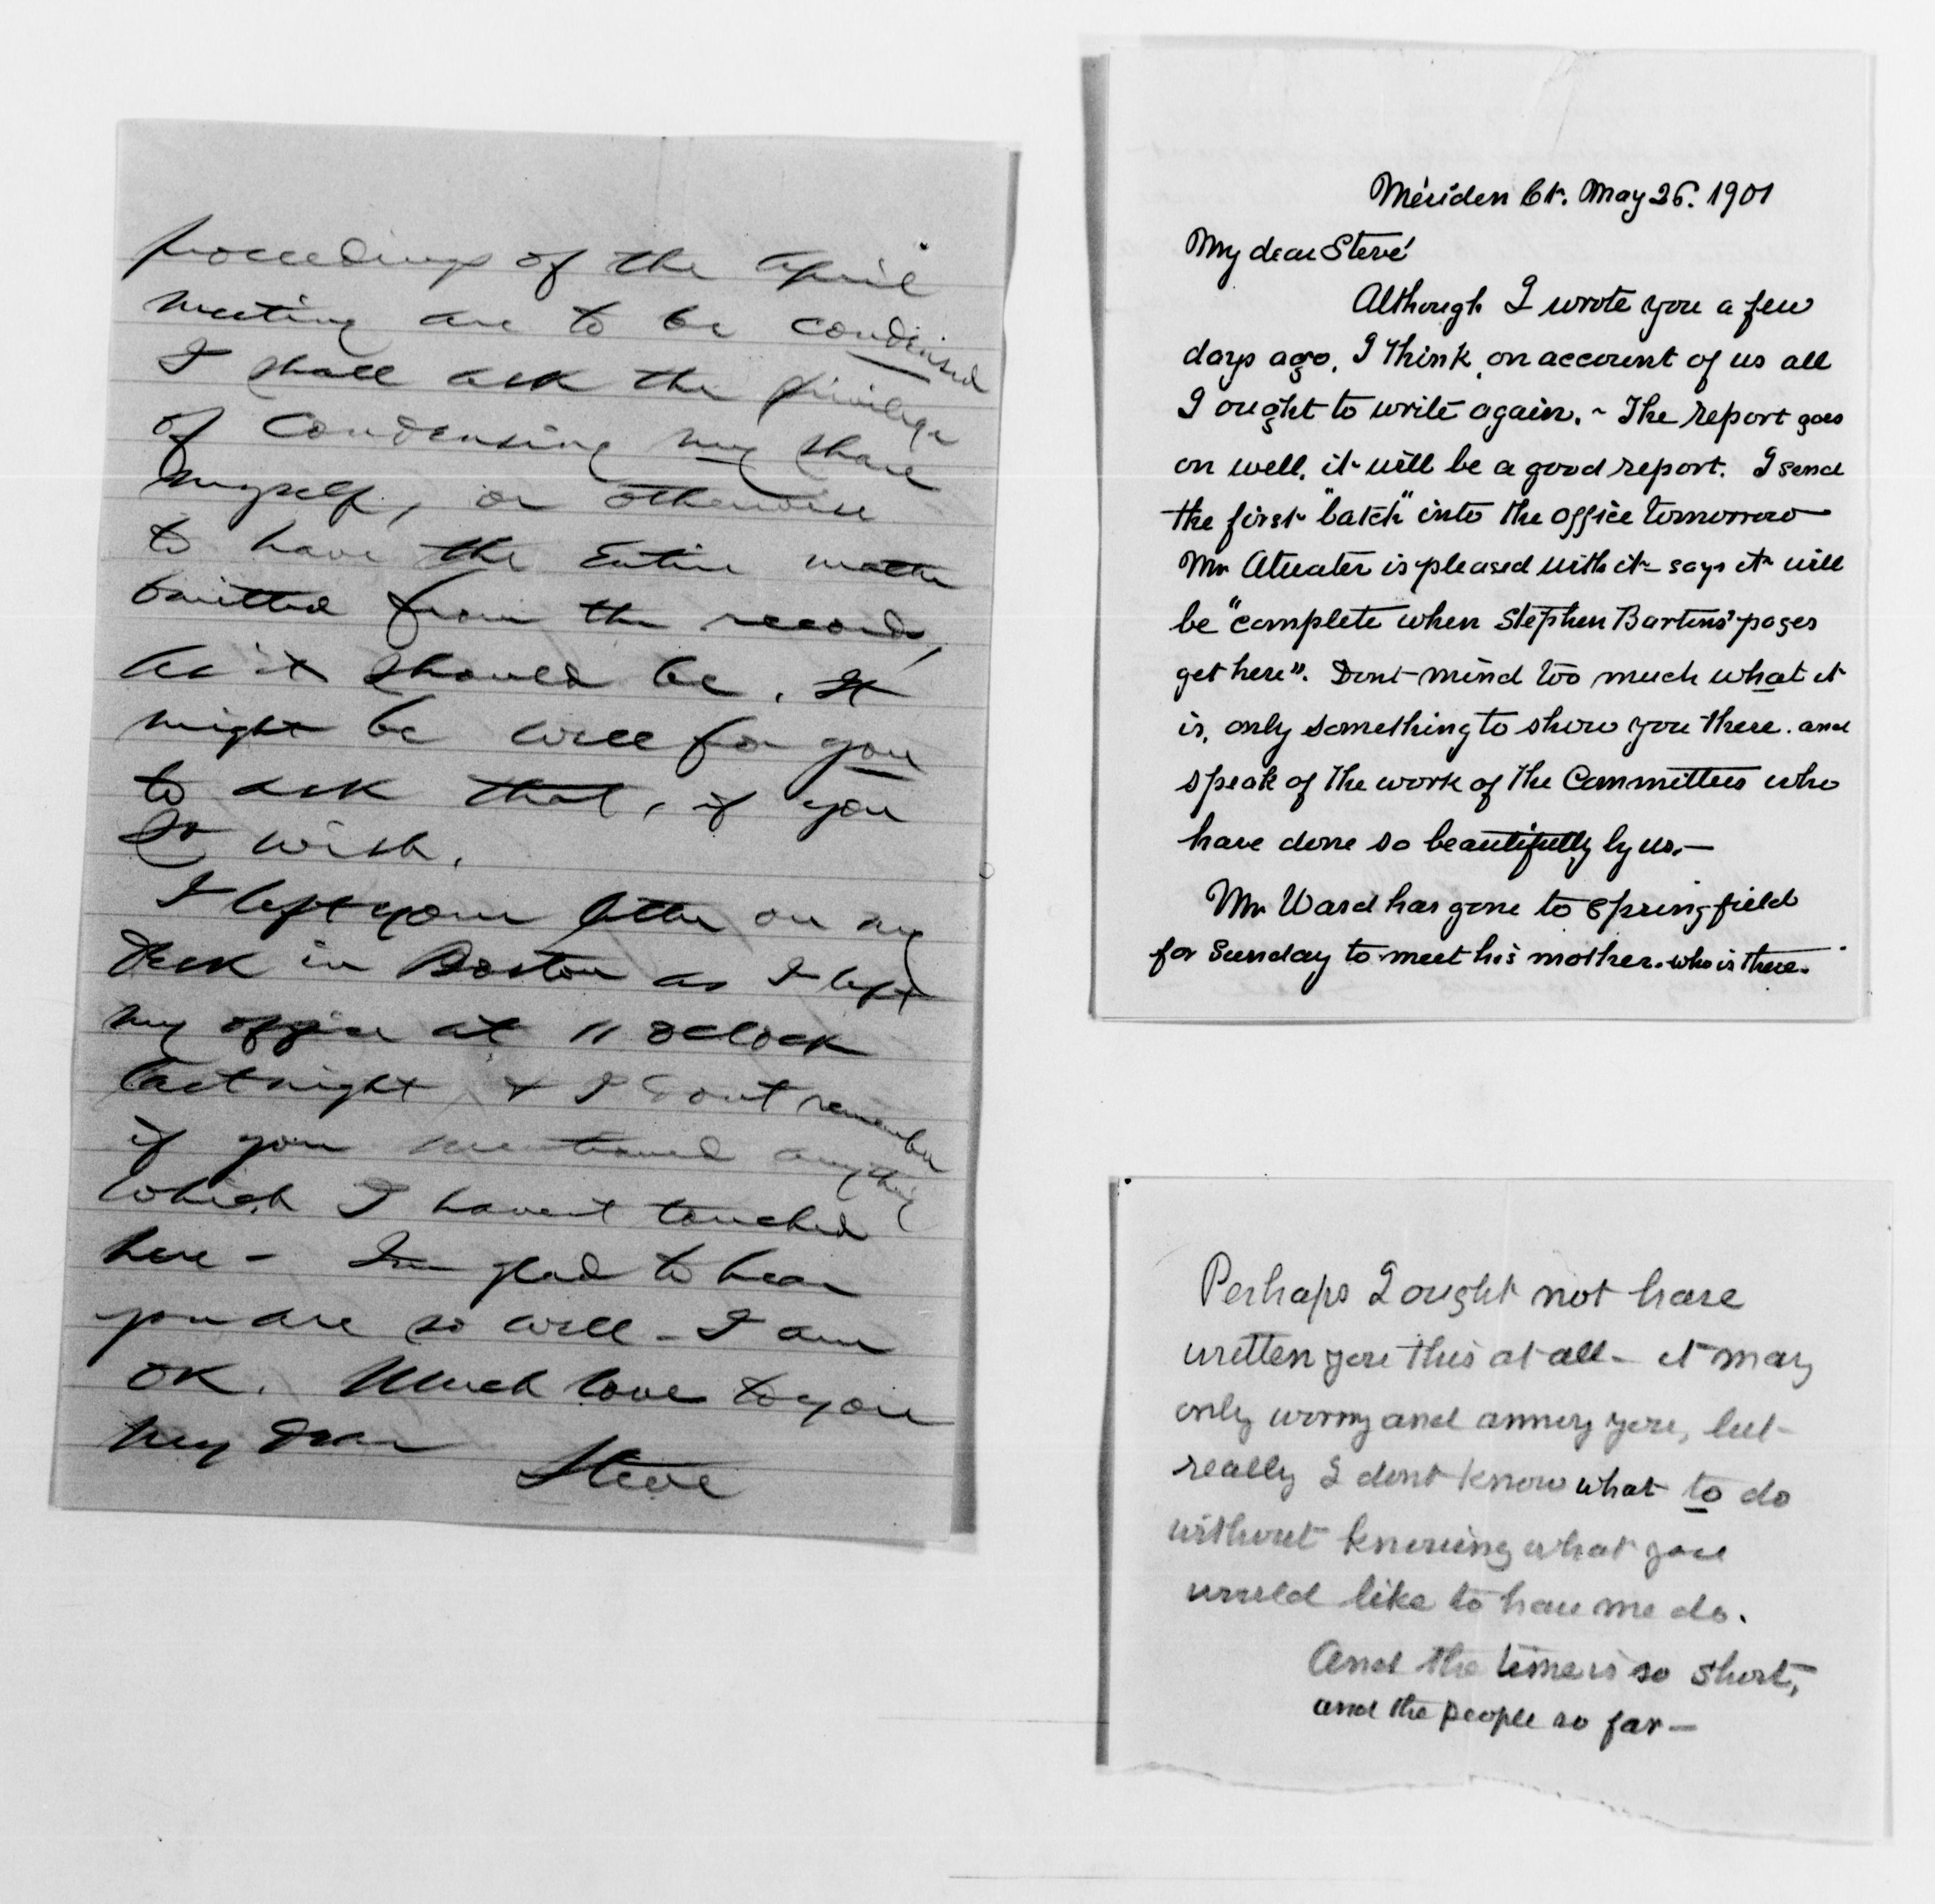 proceedings of the April
meeting are to be condensed
I shall ask the privilege
of condensing my share
myself, or otherwise
to have the entire matter
omitted from the record,
as it should be. It
might be well for you
to ask that, if you
so wish.
I left your letter on my
desk in Boston as I left
my office at 11 oclock
last night & I dont remember
if you mentioned anything
which I havent touched
here - Im glad to hear
you are so well - I am
OK. Much love to you
my dear
Steve
Meriden Ct. May 26. 1901
My dear Steve
Although I wrote you a few
days ago, I think, on account of us all
I ought to write again. ~ The report goes
on well, it will be a good report. I send
the first "batch" into the office tomorrow
Mr Atwater is pleased with it - says it will
be "complete when Stephen Bartons' pages
get here". Dont mind too much what it
is, only something to show you there. and
speak of the work of the Committees who
have done so beautifully by us. —
Mr Ward has gone to Springfield
for Sunday to meet his mother. who is there.
Perhaps I ought not have
written you this at all - it may
only worry and annoy you, but -
really I dont know what to do
without knowing what you
would like to have me do.
And the time is so short,
and the people so far —